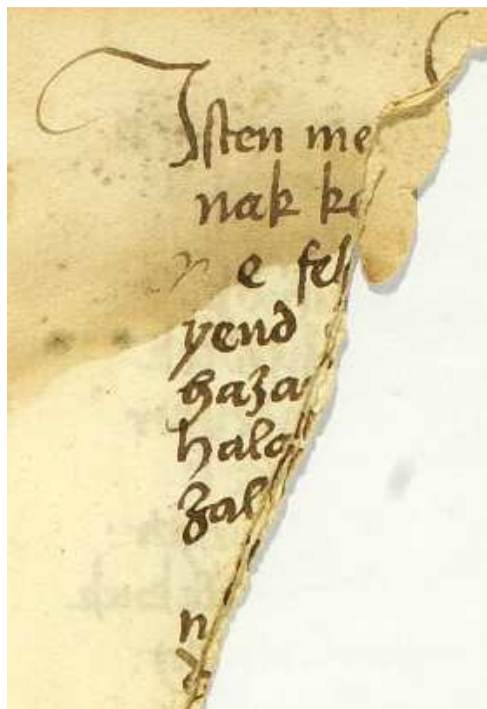 Isten me
nak ke
e fel
yend
haza
hala
zal
n